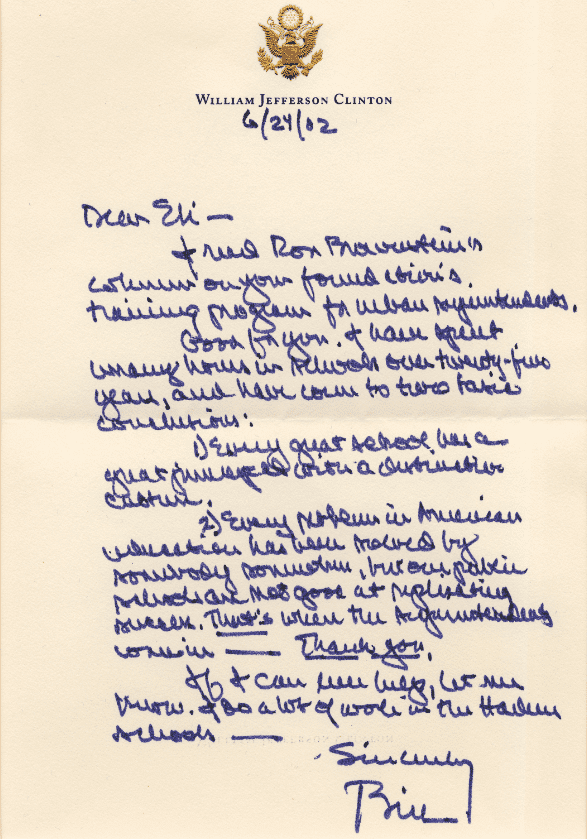 WILLIAM JEFFERSON CLINTON
6/24/02
Dear Eli —
I read Ron Brownstein's
column on your foundation's
training program for urban superintendents.
Good for you. I have spent
many hours in schools over twenty-five
years, and have come to two basic
conclusions:
1) Every great school has a
great principal with a distinctive
culture.
2) Every problem in American
education has been solved by
somebody somewhere, but our public
schools are not good at replicating
success. That's where the superintendents
come in — Thank you.
If I can ever help, let me
know. I do a lot of work in the Harlem
schools —
Sincerely
Bill